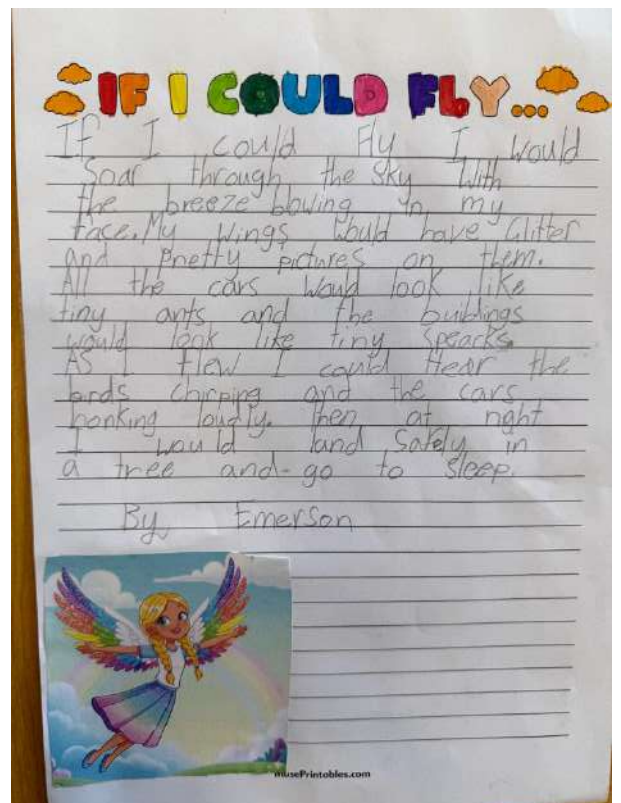 IF I COULD FLY...
If I could Fly I would
Soar through the Sky With
the breeze blowing in my
face. My Wings Would have Glitter
and pretty pictures on them.
All the cars Would look like
tiny ants and the buildings
would look like tiny Spearks.
As I flew I could Hear the
birds chirping and the cars
honking loudly. Then at night
I would land Safely in
a tree and go to sleep.
By Emerson
musePrintables.com